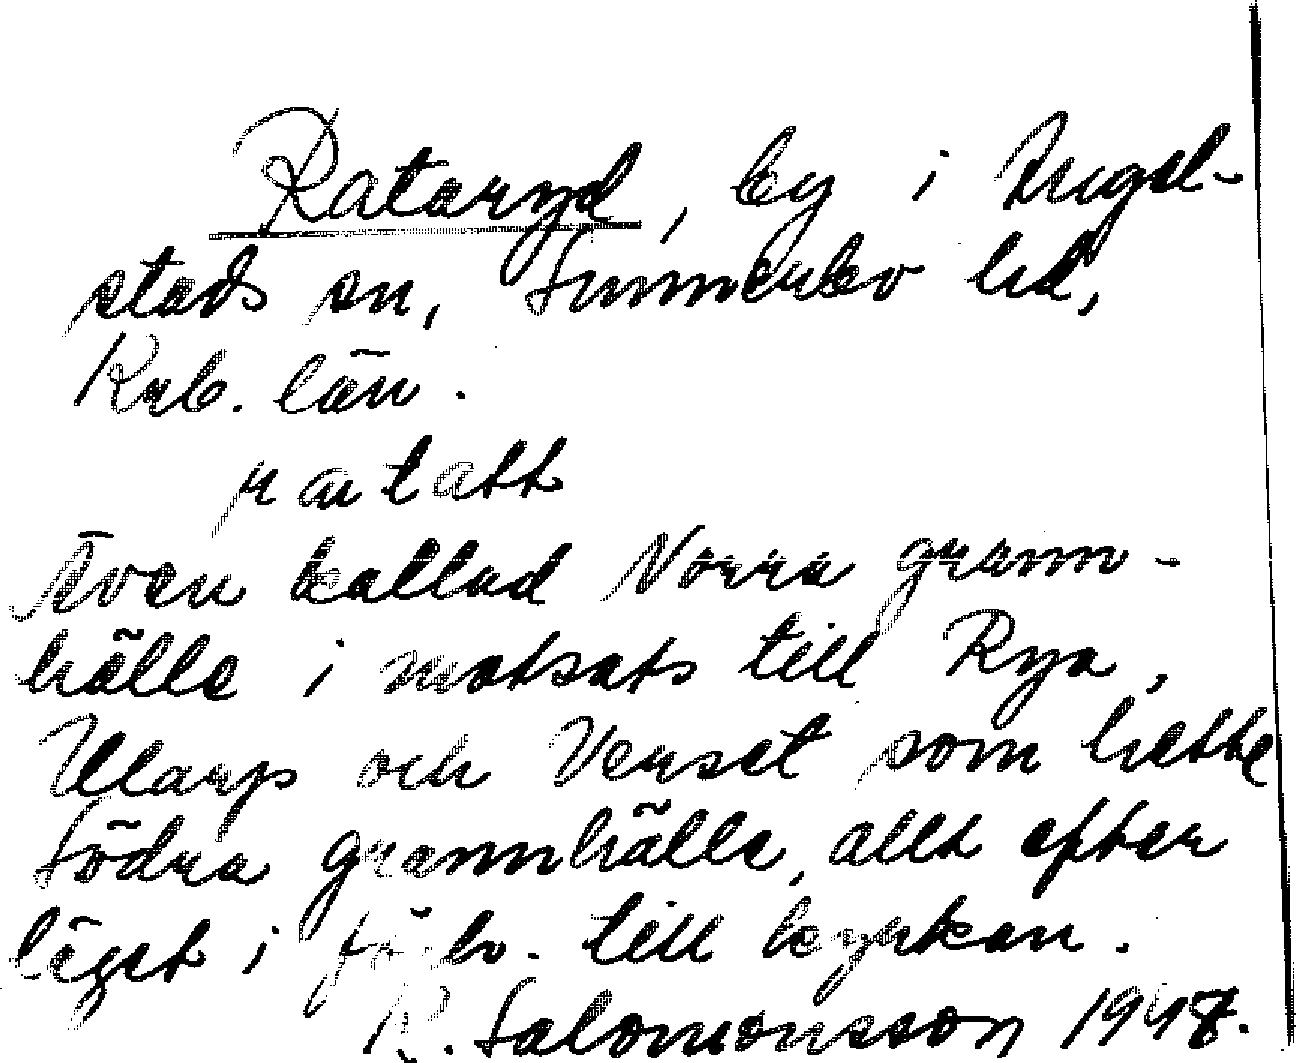 Rataryd, by i Angel-
stads sn, Sunnerbo hd,
Krb. län.
ratatt
Även kallad Norra grann-
hälle i motsats till Rya,
Ularp och Verset som hette
Södra grannhälle, allt efter
läget i förh. till kyrkan.
R. Salomonsson 1948.